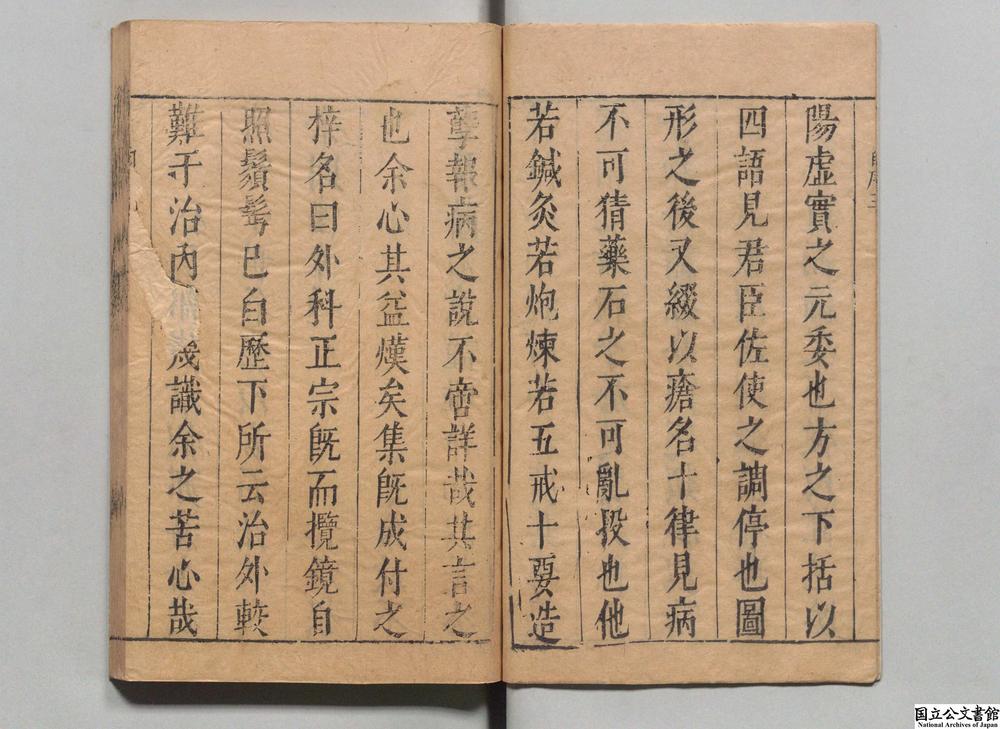 陽虛實之元委也方之下括以
四語見君臣佐使之調停也圖
形之後又綴以瘡名十律見病
不可猜藥石之不可亂投也他
若鍼灸若炮煉若五戒十要造
孽報病之說不啻詳哉其言之
也余心其益熯矣集既成付之
梓名曰外科正宗既而攬鏡自
照鬚髩已白歷下所云治外較
難于治內 識余之苦心哉
国立公文書館
National Archives of Japan